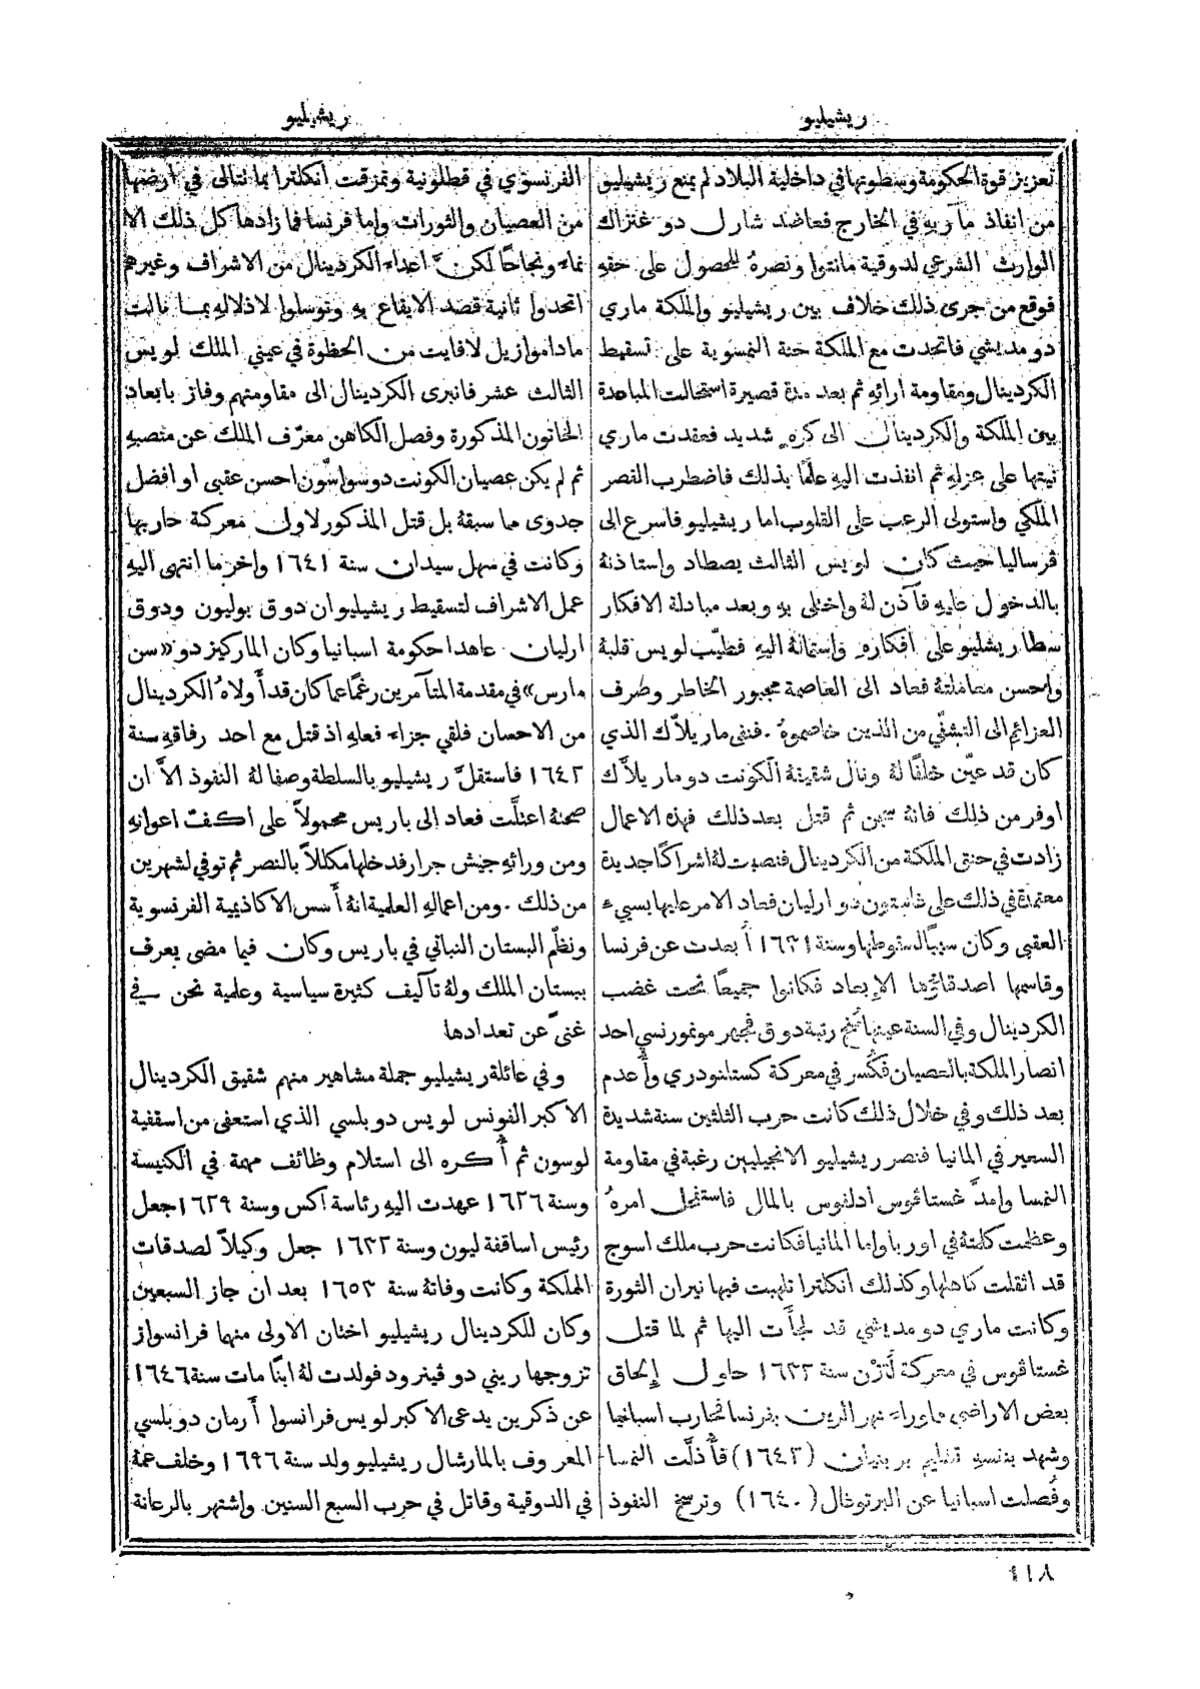 ريشيليو
ريشيليو
تعزيز قوة الحكومة وسطوتها في داخلية البلاد لم يمنع ريشيليو
من انفاذ مآربهِ في الخارج فعاضد شارل دو غنزاك
الوارث الشرعي لدوقية مانتوا ونصرهُ للحصول على حقهِ
فوقع من جرى ذلك خلاف بين ريشيليو والملكة ماري
دو مديشي فاتحدت مع الملكة حنة النمسوية على تسقيط
الكردينال ومقاومة ارائهِ ثم بعد مدة قصيرة استحالت المباعدة
بين الملكة والكردينال الى كرهٍ شديد فعقدت ماري
نيتها على عزلهِ ثم انفذت اليهِ علمًا بذلك فاضطرب القصر
الملكي واستولى الرعب على القلوب اما ريشيليو فاسرع الى
فرساليا حيث كان لويس الثالث يصطاد واستاذنهُ
بالدخول عليهِ فآذن لهُ واختلى بهِ وبعد مبادلة الافكار
سطا ريشليو على افكارهِ واستمالهُ اليهِ فطيّب لويس قلبهُ
واحسن معاملتهُ فعاد الى العاصمة مجبور الخاطر وصرف
العزائم الى التشفّي من الذين خاصموهُ . فنفى ماريلاّك الذي
كان قد عيّن خلفًا لهُ ونال شقيقهُ الكونت دو ماريلاّك
اوفر من ذلك فانهُ سجن ثم قتل بعد ذلك فهذه الاعمال
زادت في حنق الملكة من الكردينال فنصبت لهُ اشراكًا جديدة
معتمدة في ذلك على غاستون دو ارليان فعاد الامر عليها بسيىء
العقبى وكان سببًا لسقوطها وسنة ١٦٣١ أبعدت عن فرنسا
وقاسمها اصدقاؤها الابعاد فكانوا جميعًا تحت غضب
الكردينال وفي السنة عينها مُنح رتبة دوق فجهر مونمورنسي احد
انصار الملكة بالعصيان فكُسر في معركة كستلنودري وأُعدم
بعد ذلك وفي خلال ذلك كانت حرب الثلثين سنة شديدة
السعير في المانيا فنصر ريشيليو الانجيليين رغبة في مقاومة
النمسا وامدَّ غستاڤوس ادلفوس بالمال فاستفحل امرهُ
وعظمت كلمتهُ في اوربا واما المانيا فكانت حرب ملك اسوج
قد اثقلت كاهلها وكذلك انكلترا تلهبت فيها نيران الثورة
وكانت ماري دو مديشي قد لجأَت اليها ثم لما قتل
غستاڤوس في معركة لُتزن سنة ١٦٣٢ حاول إلحاق
بعض الاراضي ماوراء نهر الرين بفرنسا فحارب اسبانيا
وشهد بنفسهِ تسليم بربنيان (١٦٤٢) فأُذلَّت النمسا
وفُصلت اسبانيا عن البرتوغال (١٦٤٠) وترسخ النفوذ
الفرنسوي في قطلونية وتمزقت انكلترا بما تتالى في ارضها
من العصيان والثورات واما فرنسا فما زادها كل ذلك الا
نماءً ونجاحًا لكنّ اعداء الكردينال من الاشراف وغيرهم
اتحدوا ثانية قصد الايقاع بهِ وتوسلوا لاذلالهِ بما نالت
مادامو ازيل لافايت من الحظوة في عيني الملك لويس
الثالث عشر فانبرى الكردينال الى مقاومتهم وفاز بابعاد
الخاتون المذكورة وفصل الكاهن معرّف الملك عن منصبهِ
ثم لم يكن عصيان الكونت دو سواسّون احسن عقبى او افضل
جدوى مما سبقهُ بل قتل المذكور لاول معركة حاربها
وكانت في سهل سيدان سنة ١٦٤١ واخر ما انتهى اليهِ
عمل الاشراف لتسقيط ريشيليو ان دوق بوليون ودوق
ارليان عاهدا حكومة اسبانيا وكان الماركيز دو «سن
مارس» في مقدمة المتآمرين رغمًا عما كان قد أَولاهُ الكردينال
من الاحسان فلقي جزاء فعلهِ اذ قتل مع احد رفاقهِ سنة
١٦٤٢ فاستقلَّ ريشيليو بالسلطة وصفا لهُ النفوذ الاَّ ان
صحتهُ اعتلَّت فعاد الى باريس محمولاً على اكف اعوانهِ
ومن ورائهِ جيش جرار فدخلها مكللاً بالنصر ثم توفي لشهرين
من ذلك . ومن اعمالهِ العلمية انهُ أَسس الاكاذيمية الفرنسوية
ونظّم البستان النباتي في باريس وكان فيما مضى يعرف
ببستان الملك ولهُ تآليف كثيرة سياسية وعلمية نحن في
غنىً عن تعدادها
وفي عائلة ريشيليو جملة مشاهير منهم شقيق الكردينال
الاكبر الفونس لويس دو بلسي الذي استعفى من اسقفية
لوسون ثم أُكره الى استلام وظائف مهمة في الكنيسة
وسنة ١٦٢٦ عهدت اليهِ رئاسة اكس وسنة ١٦٢٩ جعل
رئيس اساقفة ليون وسنة ١٦٣٢ جعل وكيلاً لصدقات
المملكة وكانت وفاتهُ سنة ١٦٥٣ بعد ان جاز السبعين
وكان للكردينال ريشيليو اختان الاولى منهما فرانسواز
تزوجها ريني دو ڤينرود فولدت لهُ ابنًا مات سنة ١٦٤٦
عن ذكرين يدعى الاكبر لويس فرانسوا أَرمان دو بلسي
المعروف بالمارشال ريشيليو ولد سنة ١٦٩٦ وخلف عمهُ
في الدوقية وقاتل في حرب السبع السنين واشتهر بالرعانة
١١٨